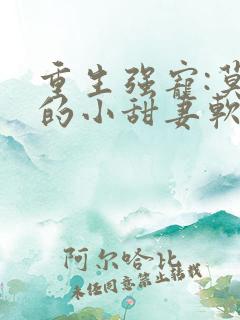 重生强寵:莫
的小甜妻軟
阿尔哈比
未经同意禁止转载